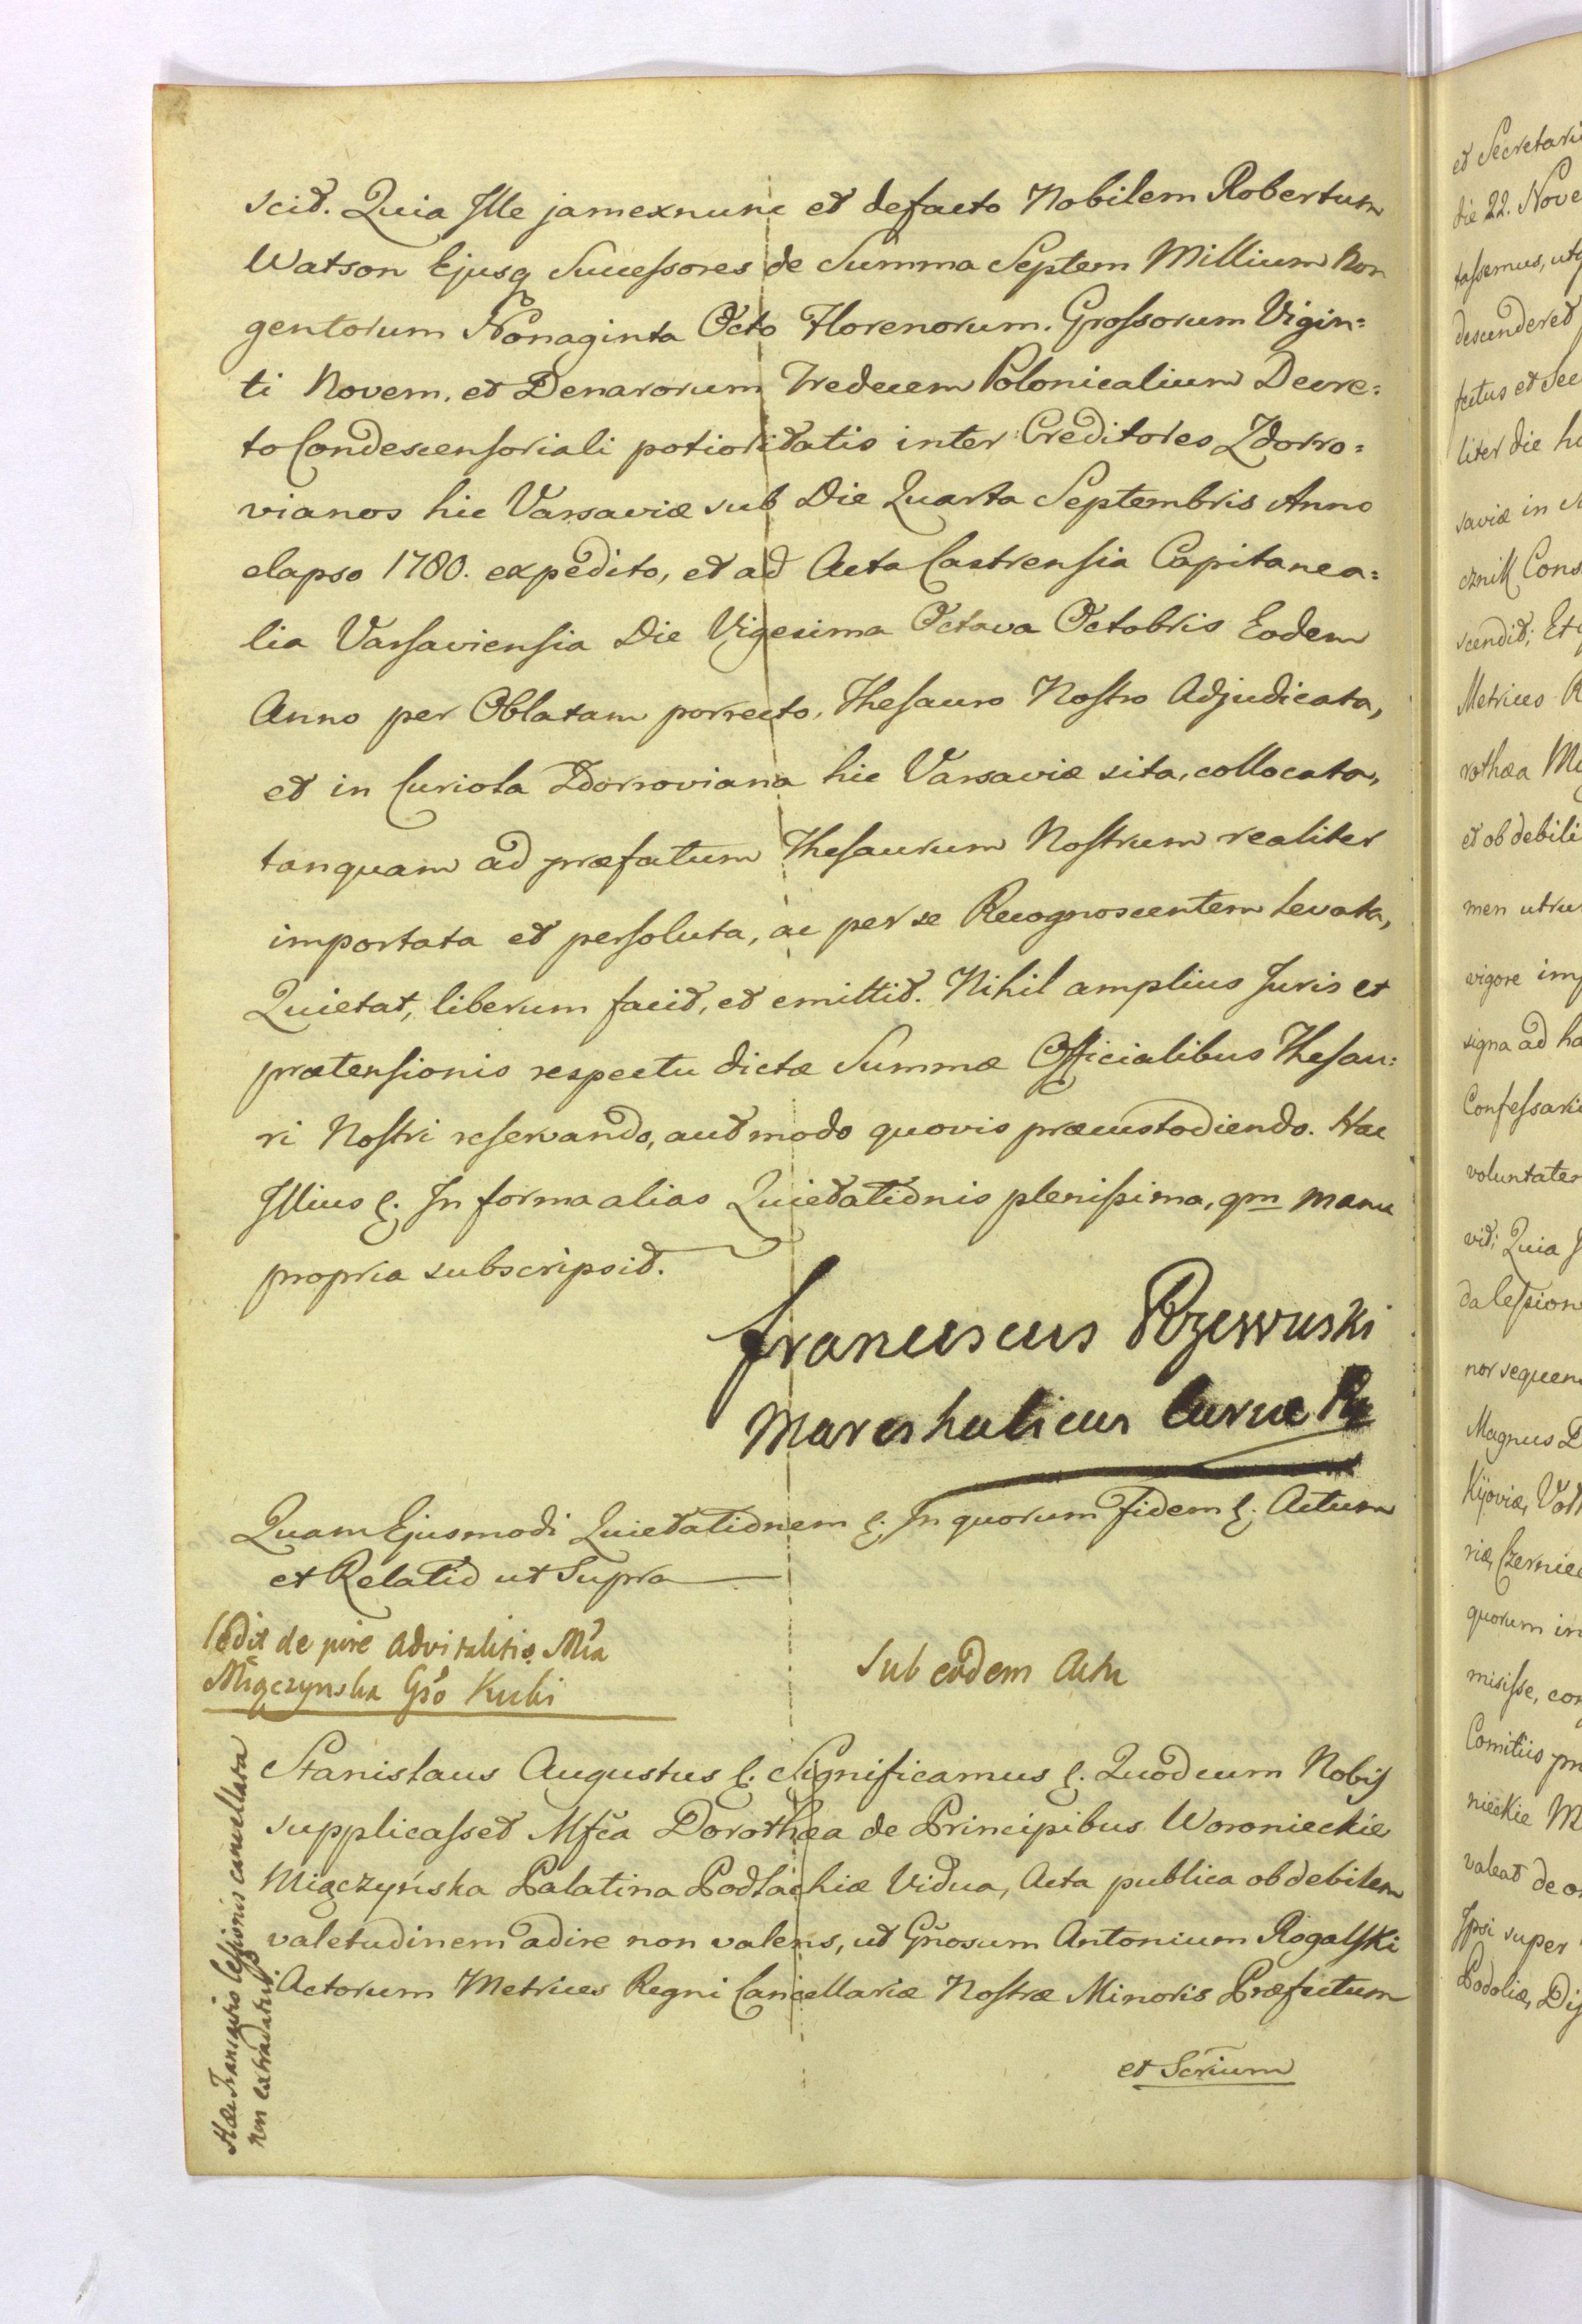 scit. Quia Ille jam exnunc et defacto Nobilem Robertum
Watson Ejusq Successores de Summa Septem Millium Non
gentorum Nonaginta Octo Florenorum. Grossorum Vigin:
ti Novem. et Denarorum Tredecem Polonicalium Decre:
to Condescensoriali potioritatis inter Creditores Zdorro:
vianos hic Varsaviæ sub Die Quarta Septembris Anno
elapso 1780. expedito, et ad Acta Castrensia Capitanea:
lia Varsaviensia Die Vigesima Octava Octobris Eodem
Anno per Oblatam porrecto, Thesauro Nostro Adjudicata,
et in Curiola Zdorroviana hic Varsaviæ sita, collocata,
tanquam ad præfatum Thesaurum Nostrum realiter
importata et persoluta, ac per se Recognoscentem levata,
Quietat, liberum facit, et emittit. Nihil amplius Juris et
prætensionis respectu dictæ Summæ Officialibus Thesau:
ri Nostri reservando, aut modo quovis præcustodiendo. Hac
Illius &. In forma alias Quietationis plenissima, qm manu
propria subscripsit.
Franciscus Rzewuski
Mareshalicus Curiæ R
Quam Ejusmodi Quietationem &. In quorum Fidem &. Actum
et Relatio ut Supra
Cedit de jure advitalitio Mca
Miączynska Gso Kicki
Sub eodem Actu
Stanislaus Augustus &. Significamus &. Quod cum Nobis
supplicasset Mfca Dorothea de Principibus Woronieckie
Miączyńska Palatina Podlachiæ Vidua, Acta publica ob debilem
valetudinem adire non valens, ut Gnosum Antonium Rogalski
Actorum Metrices Regni Cancellariæ Nostræ Minoris Præfectum
et Scrium
Hæc Transactio Cessionis cancellata
non extradatur
et Secretari
die 22. Nove
tassemus, utq
descenderet
fectus et Sec
liter die h
saviæ in
cznik Cons
scendit; Et
Metrices R
rothæa M
et ob debili
men utru
vigore im
signa ad ha
Confessari
voluntate
vit; Quia
da Cession
nor sequen
Magnus D
Kijoviæ, Vol
riæ, Czernie
quorum in
misisse, con
Comitiis pr
nieckie M
valeat de o
Ipsi super
Podoliæ, Dis